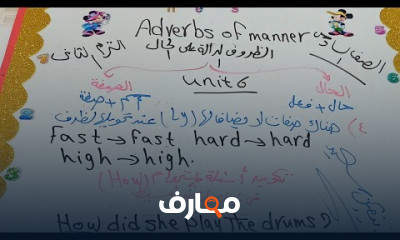 Adverbs of manner
الصف السادس
الظروف الدالة على الحال
الترم الثاني
unit 6
الحال
الصفة
حال + فعل
اسم + صفة
٤) هناك صفات لا يضاف لها (ly) عند تحويلها لظرف
fast → fast, hard → hard
high → high.
(How)
معارف
How did she play the drums?